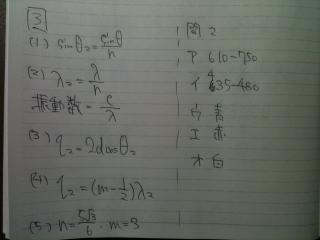 3
(1) sinθ₂ = sinθ/n
(2) λ₂ = λ/n
振動数 = c/λ
(3) l₂ = 2dcosθ₂
(4) l₂ = (m - 1/2)λ₂
(5) n = 5√3/6 . m = 3
問 2
ア 610-750
イ 435-480
ウ 青
エ 赤
オ 白